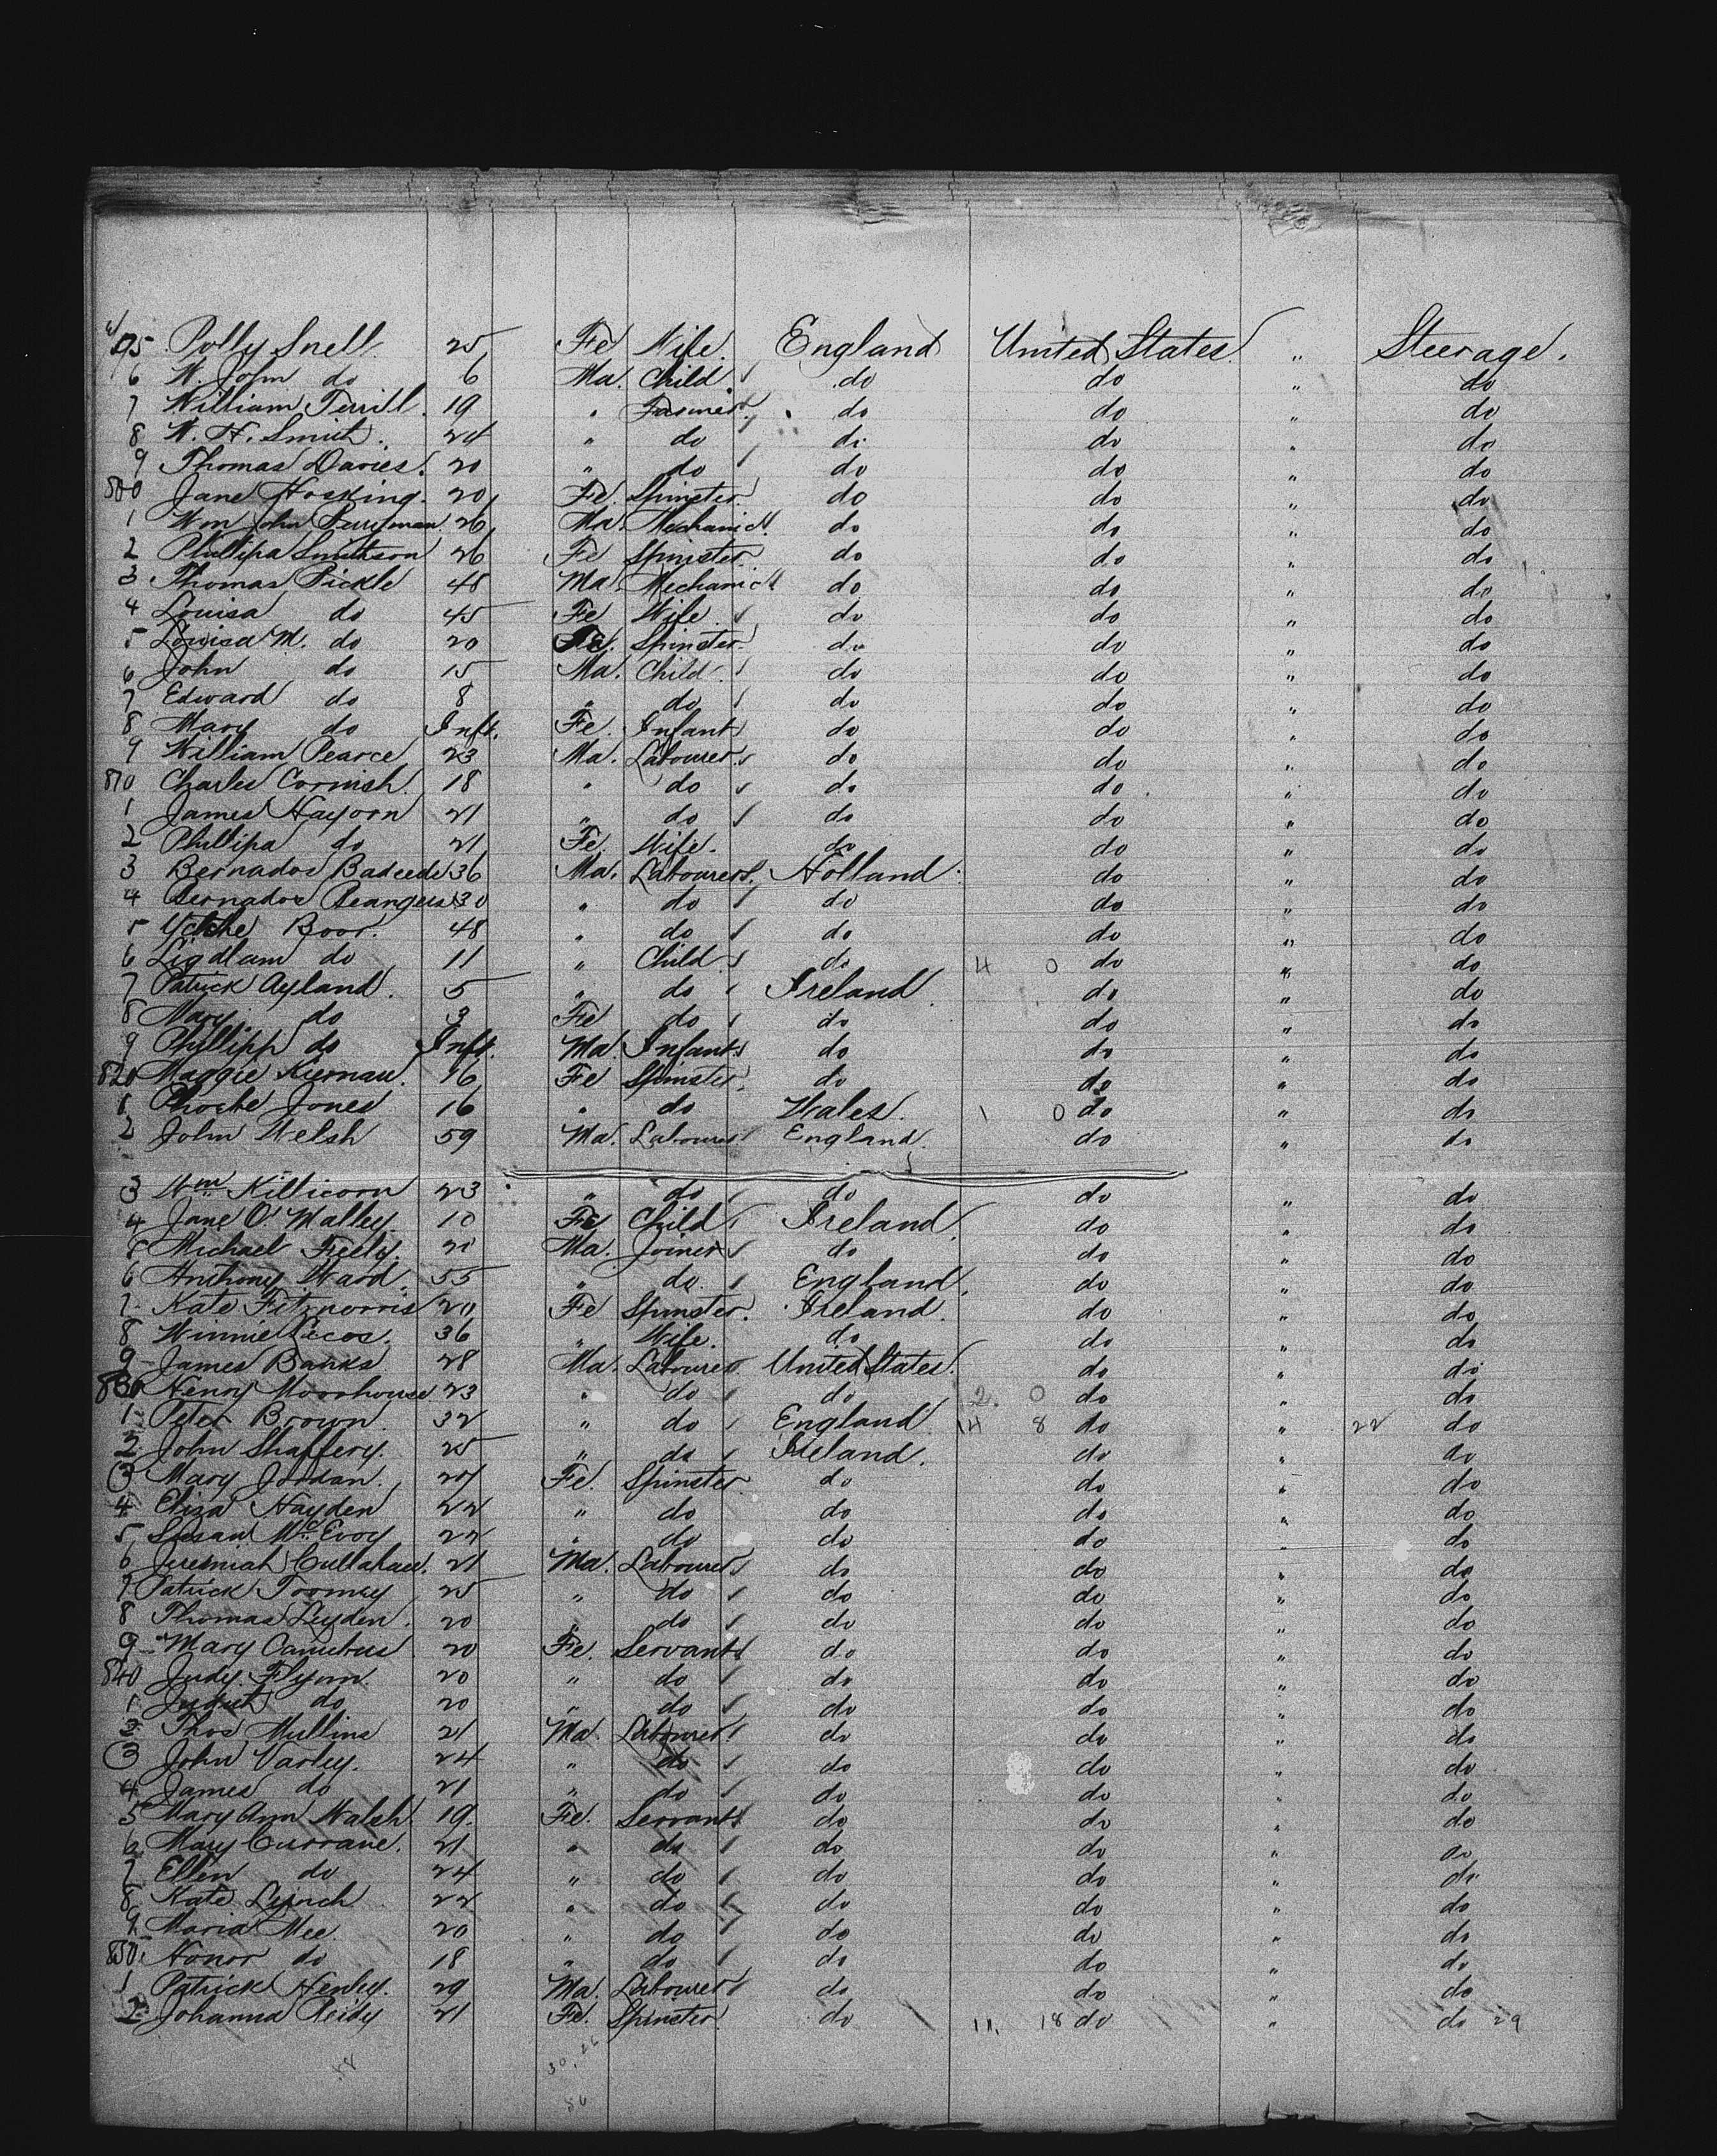 795 Polly Snell. 25 Fe Wife. England United States. " Steerage.
6 W. John do 6 Ma. Child. do do " do
7 William Terrill. 19 " Farmer. do do " do
8 W. H. Smith. 24 " do do do " do
9 Thomas Davies. 20 " do do do " do
800 Jane Hosking. 20 Fe. Spinster. do do " do
1 Wm John Berryman 26 Ma. Mechanic do do " do
2 Phillipa Smithson 26 Fe Spinster. do do " do
3 Thomas Pickle 48 Ma. Mechanic do do " do
4 Louisa do 45 Fe Wife. do do " do
5 Louisa M. do 20 Fe. Spinster. do do " do
6 John do 15 Ma. Child. do do " do
7 Edward do 8 " do do do " do
8 Mary do Inft. Fe. Infant do do " do
9 William Pearce 23 Ma. Labourer. do do " do
810 Charles Cornish. 18 " do do do " do
1 James Hayorn 21 " do do do " do
2 Phillipa do 21 Fe. Wife. do do " do
3 Bernados 36 Ma. Labourer. Holland. do " do
4 Bernados 30 " do do do " do
5 Boor. 48 " do do do " do
6 Ligdlam do 11 " Child do 4 0 do " do
7 Patrick Ayland. 5 " do Ireland. do " do
8 Mary do 3 Fe do do do " do
9 Phillipp do Inft. Ma. Infant do do " do
820 Maggie Kiernan. 16 Fe Spinster. do do " do
1 Phoebe Jones 16 " do Wales. 1 0 do " do
2 John Welsh 59 Ma. Labourer England. do " do
3 Wm Killicorn 23 " do do do " do
4 Jane O'Malley. 10 Fe Child. Ireland. do " do
5 Michael Freely. 21 Ma. Joiner do do " do
6 Anthony Ward. 55 " do. England. do " do
7 Kate Fitzmorris 20 Fe Spinster. Ireland. do " do
8 Winnie 36 " Wife. do do " do
9 James Banks 28 Ma. Labourer United States. do " do
830 Henry Moorhouse. 23 " do do 2. 0 do " do
1 Peter Brown. 32 " do England 14 8 do " 22 do
2 John Shaffery. 25 " do Ireland. do " do
3 Mary Jordan. 24 Fe. Spinster do do " do
4 Eliza Hayden 22 " do do do " do
5 Susan McEvoy 22 " do do do " do
6 Jeremiah Cullahane. 21 Ma. Labourer do do " do
7 Patrick Toomey 25 " do do do " do
8 Thomas Leyden. 20 " do do do " do
9 Mary 20 Fe. Servant do do " do
840 Judy. Flynn. 20 " do do do " do
1 do 20 " do do do " do
2 Thos Mullins 21 Ma. Labourer do do " do
3 John Varley. 24 " do do do " do
4 James do 21 " do do do " do
5 Mary Ann Walsh. 19. Fe. Servant do do " do
6 Mary Currane. 21 " do do do " do
7 Ellen do 24 " do do do " do
8 Kate Lynch 22 " do do do " do
9 Maria Mee. 20 " do do do " do
850 Honor do 18 " do do do " do
1 Patrick Henley. 29 Ma. Labourer do do " do
2 Johanna Reidy 21 Fe. Spinster. do 11, 18 do " do 29
30, 26
58
56